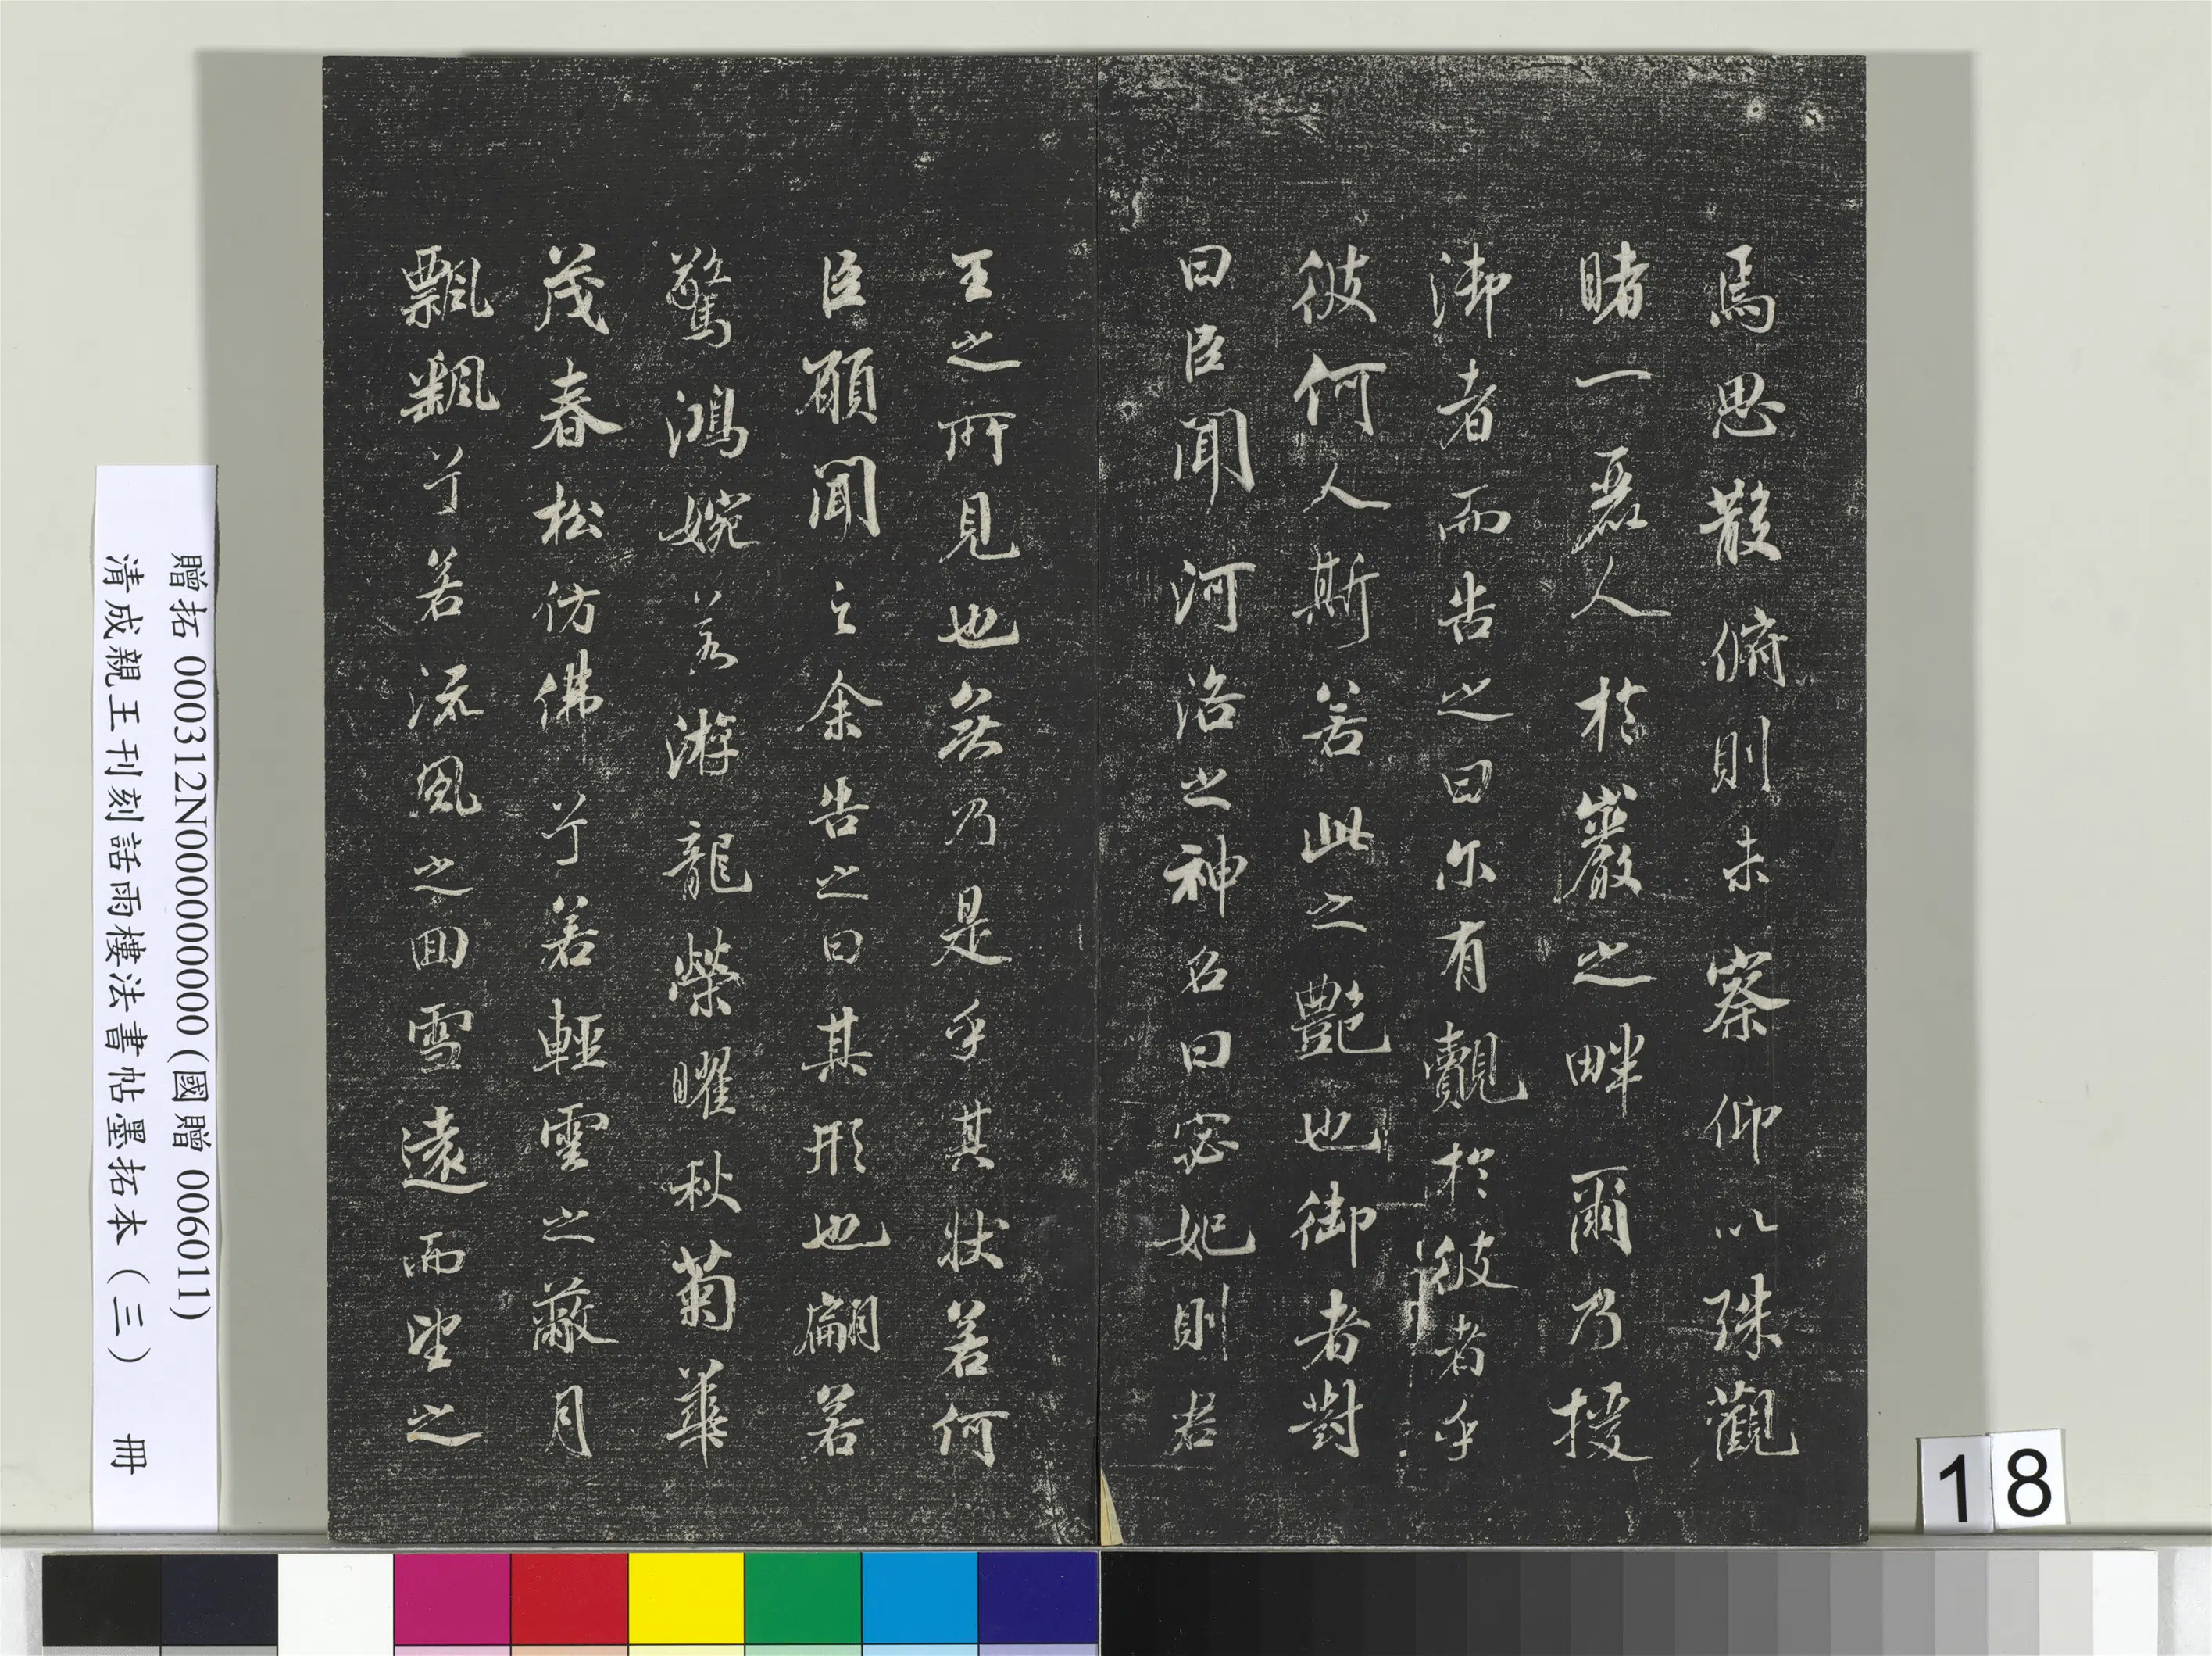 焉思散俯則未察仰以殊觀
睹一麗人於巖之畔爾乃授
御者而告之曰尔有覿於彼者乎
彼何人斯若此之艷也御者對
曰臣聞河洛之神名曰宓妃則君
王之所見也無乃是乎其狀若何
臣願聞之余告之曰其形也翩若
驚鴻婉若游龍榮曜秋菊華
茂春松仿佛兮若輕雲之蔽月
飄颻兮若流風之回雪遠而望之
贈拓 000312N000000000 (國贈 006011)
清成親王刊刻詒晉樓法書帖墨拓本（三） 冊
18